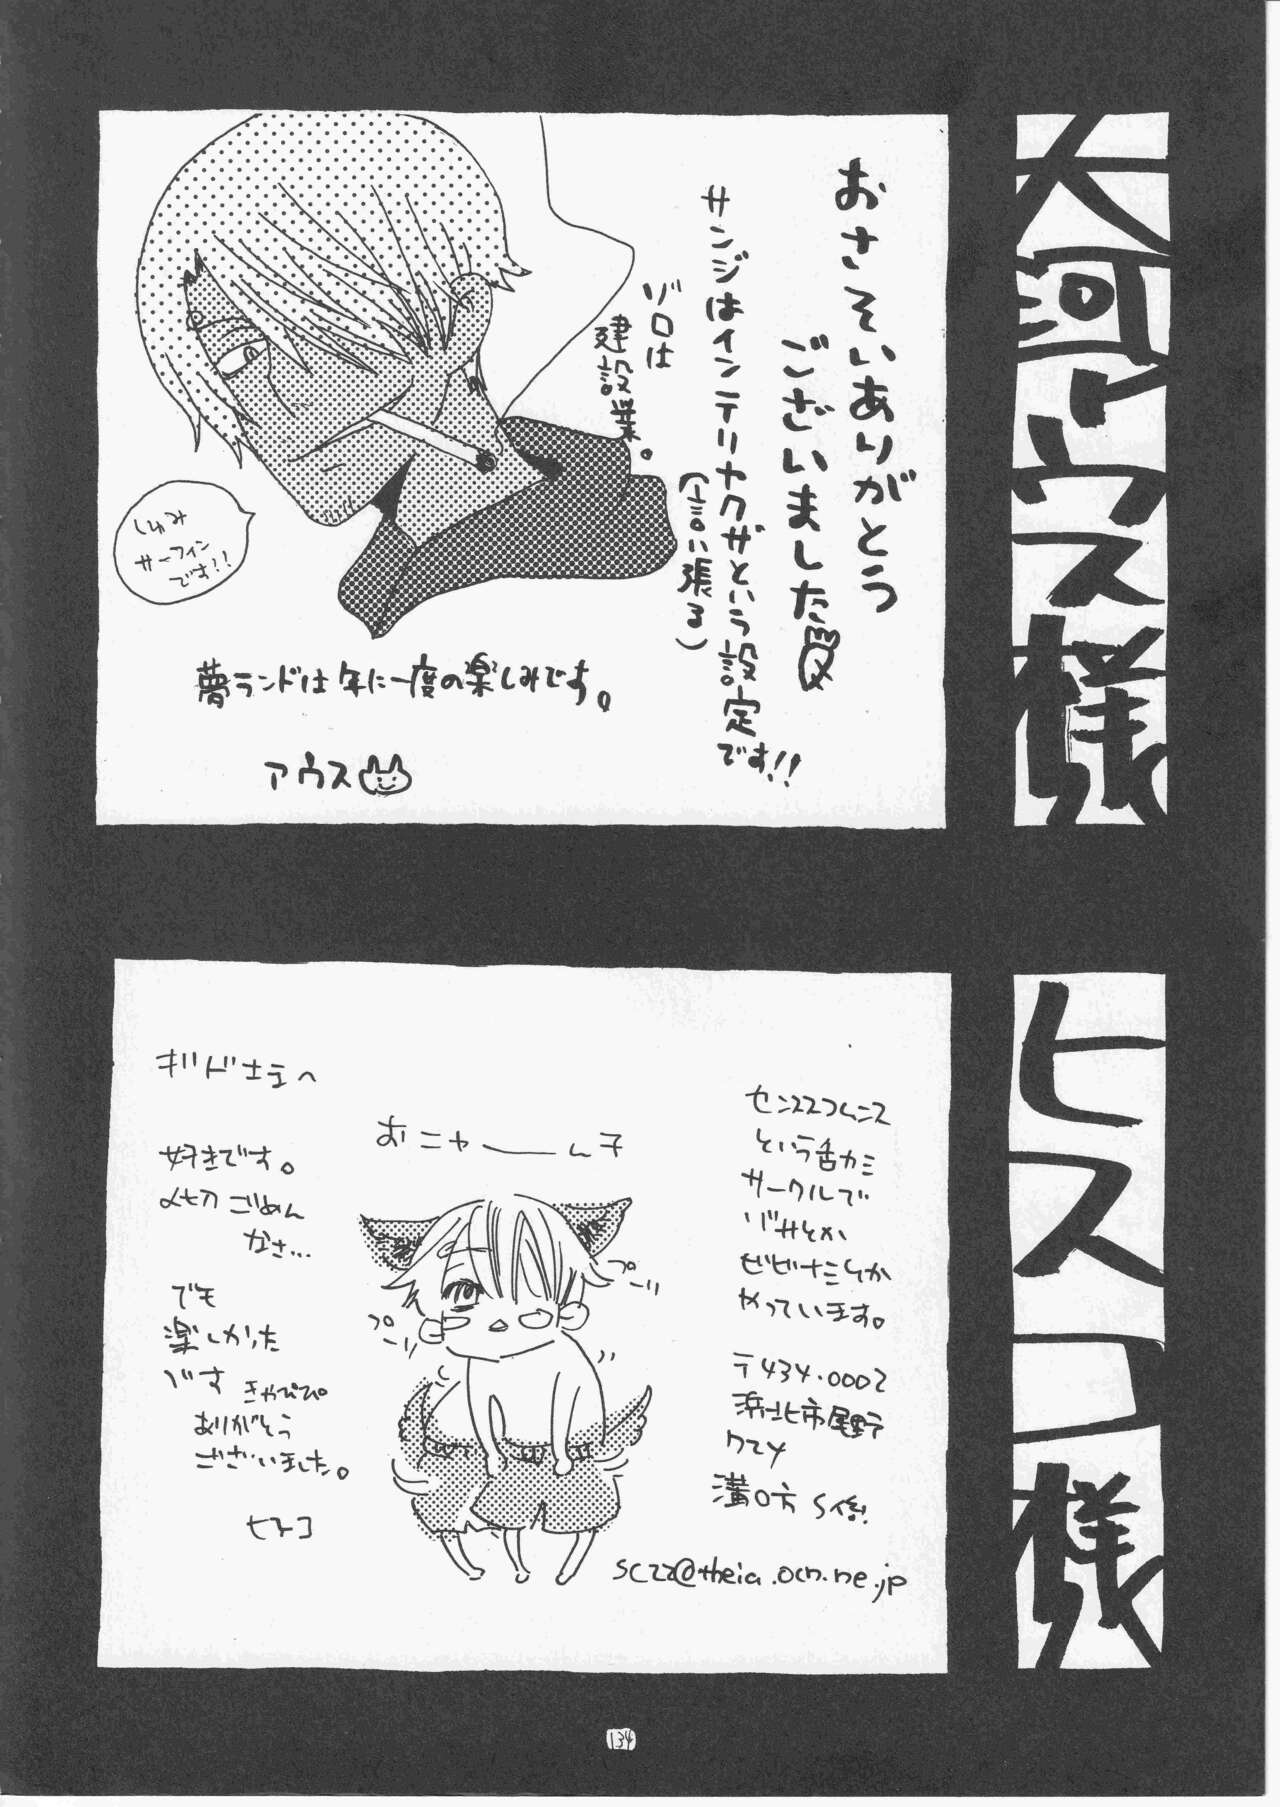 大河アウス様
おさそいありがとう
ございました
サンジはインテリヤクザという設定です!!
(言い張る)
ゾロは
建設業。
しゅみ
サーフィン
です!!
夢ランドは年に一度の楽しみです。
アウス
ヒスコ様
センススコムニス
という舌カミ
サークルで
ゾサとか
ビビナミとか
やっています。
〒434.0002
浜北市尾野
溝口方 S係
sc22@theia.ocn.ne.jp
おニャーーん子
プーリ
プーリ
好きです。
〆切ごめん
なさ…
でも
楽しかった
です
きゃぴぴ
ありがとう
ございました。
ヒスコ
134